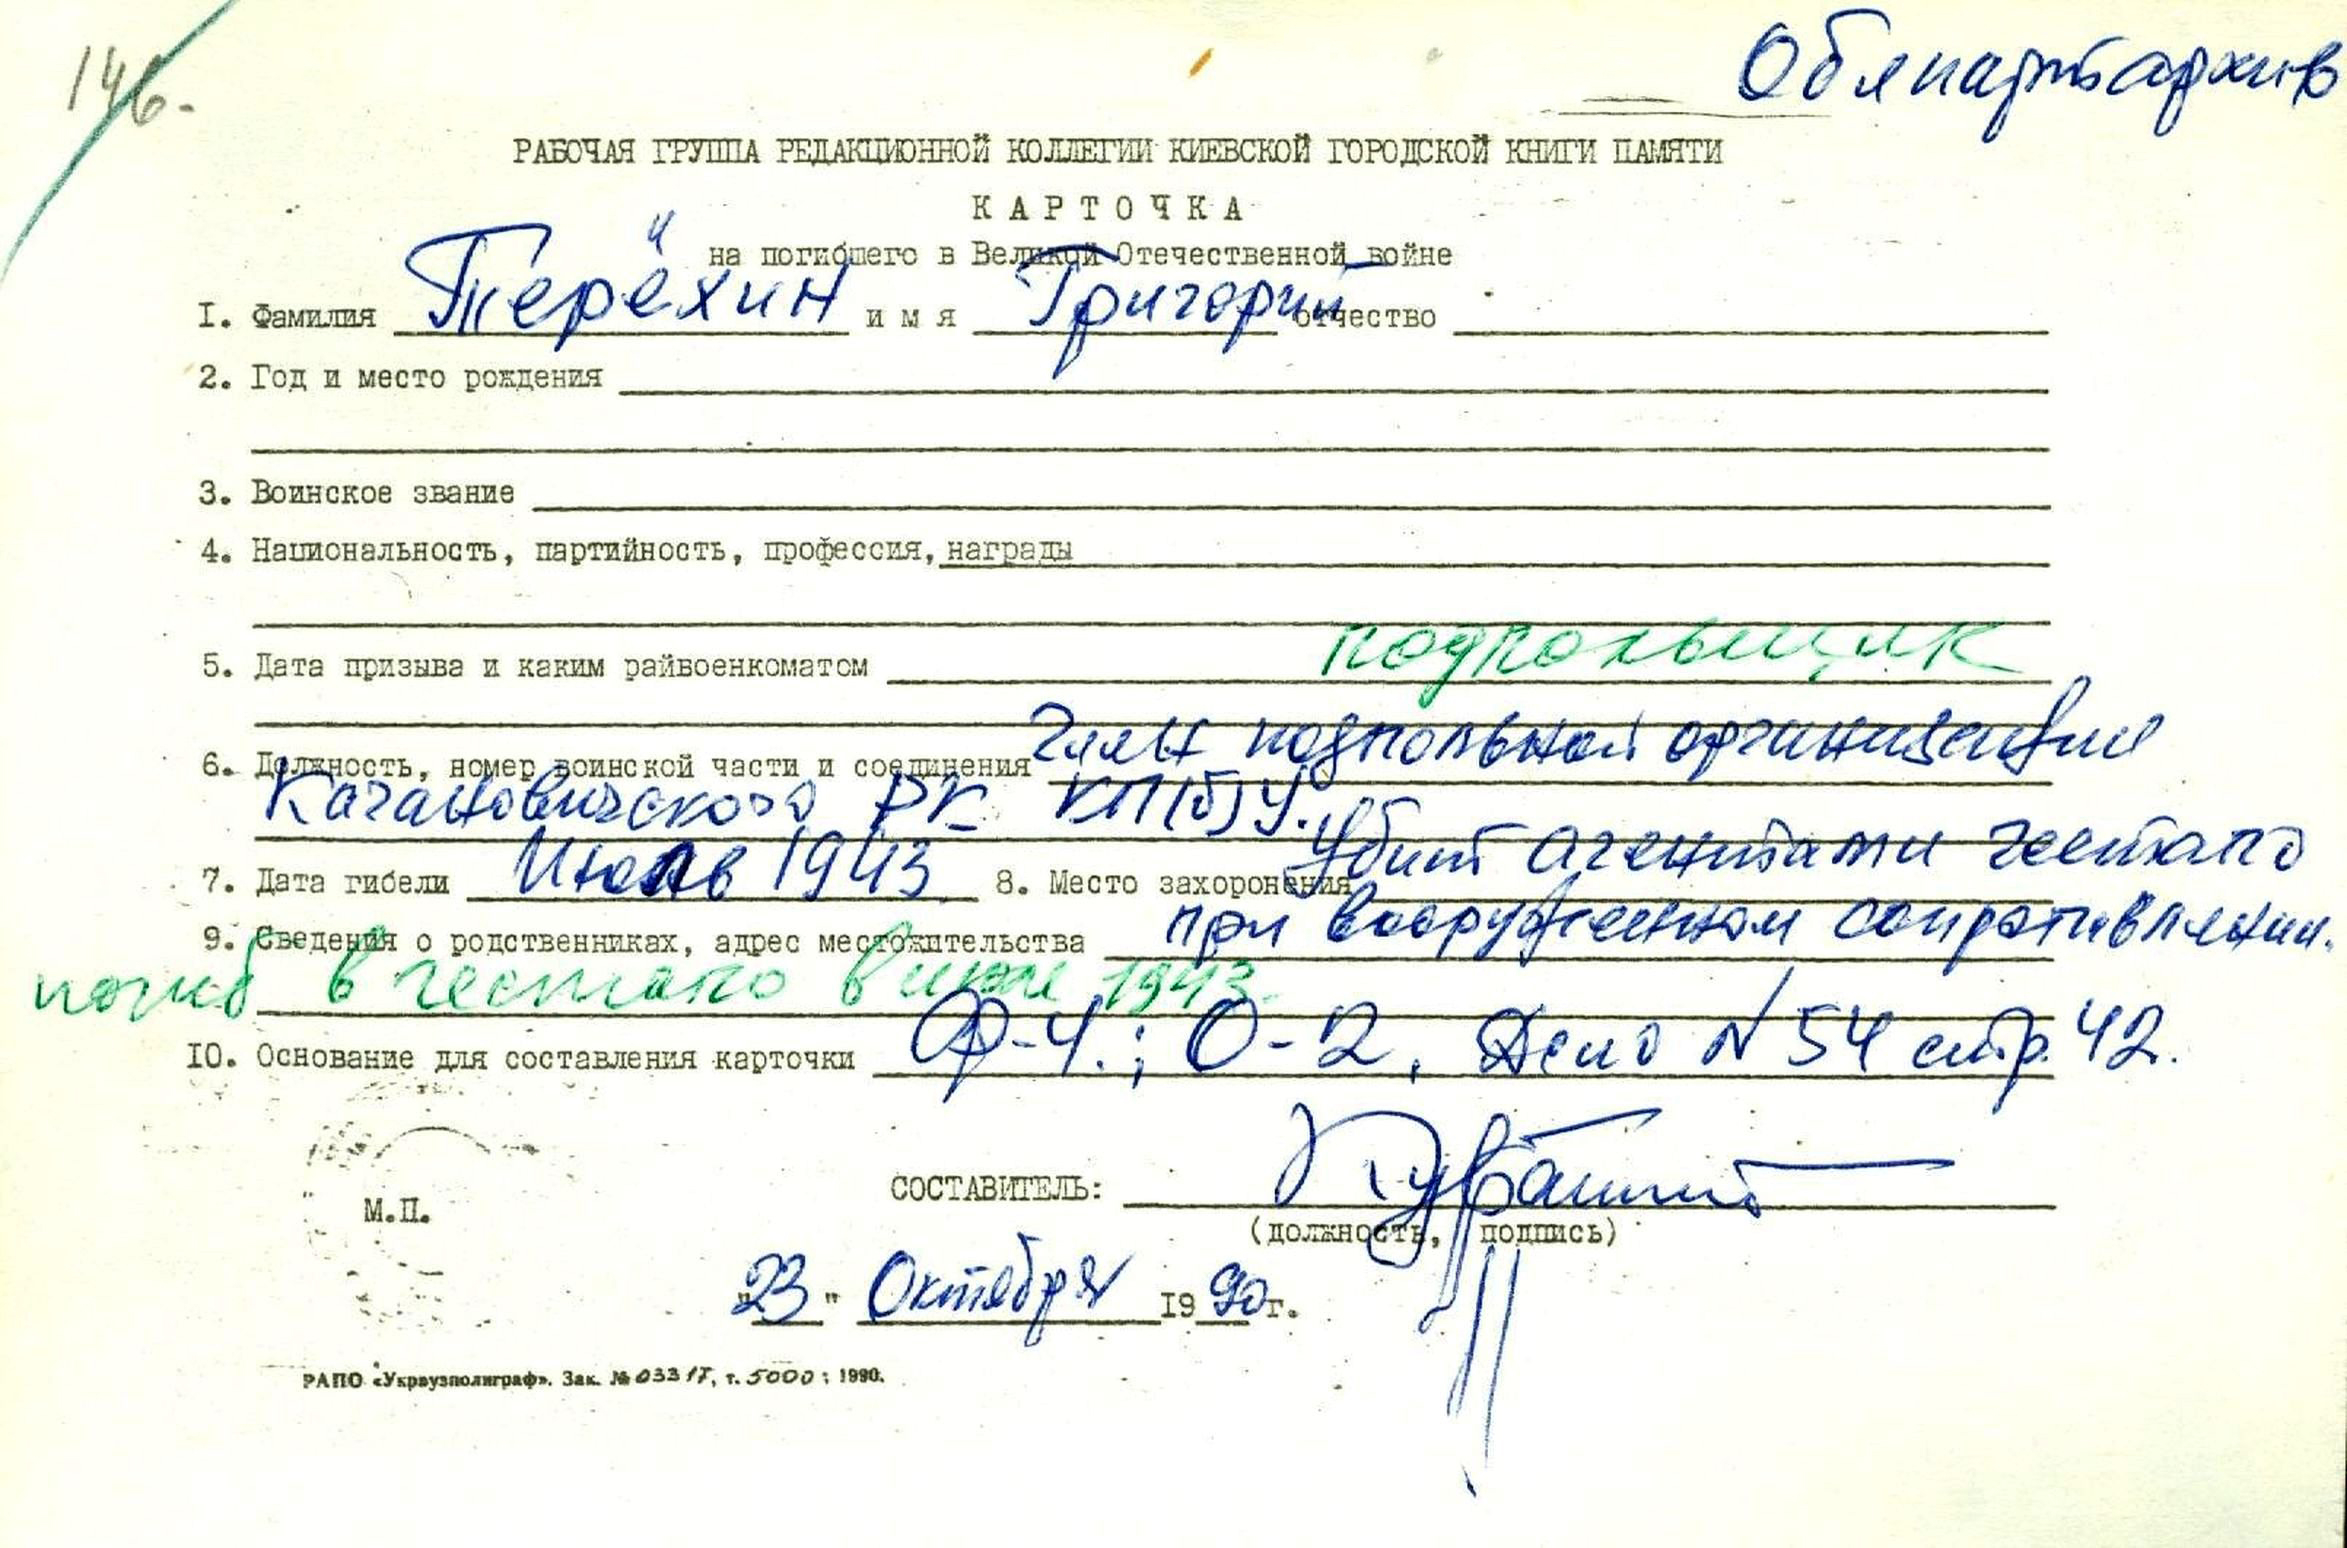 146.
Облпартархив
РАБОЧАЯ ГРУППА РЕДАКЦИОННОЙ КОЛЛЕГИИ КИЕВСКОЙ ГОРОДСКОЙ КНИГИ ПАМЯТИ
КАРТОЧКА
на погибшего в Великой Отечественной войне
и
I. Фамилия Терёхин имя Григорий отчество
2. Год и место рождения
3. Воинское звание
4. Национальность, партийность, профессия, награды
5. Дата призыва и каким райвоенкоматом подпольщик
6. Должность, номер воинской части и соединения член подпольной организации
Кагановичского РК КП(б)У.
7. Дата гибели Июль 1943 8. Место захоронения Убит агентами гестапо
при вооруженном сопротивлении.
9. Сведения о родственниках, адрес местожительства
погиб в гестапо в июле 1943.
10. Основание для составления карточки Ф-4.; О-2, Дело N 54 стр. 42.
СОСТАВИТЕЛЬ:
М.П.
(должность, подпись)
"23" Октября 1990г.
РАПО «Укрвузполиграф». Зак. № 0331Т, т. 5000; 1990.